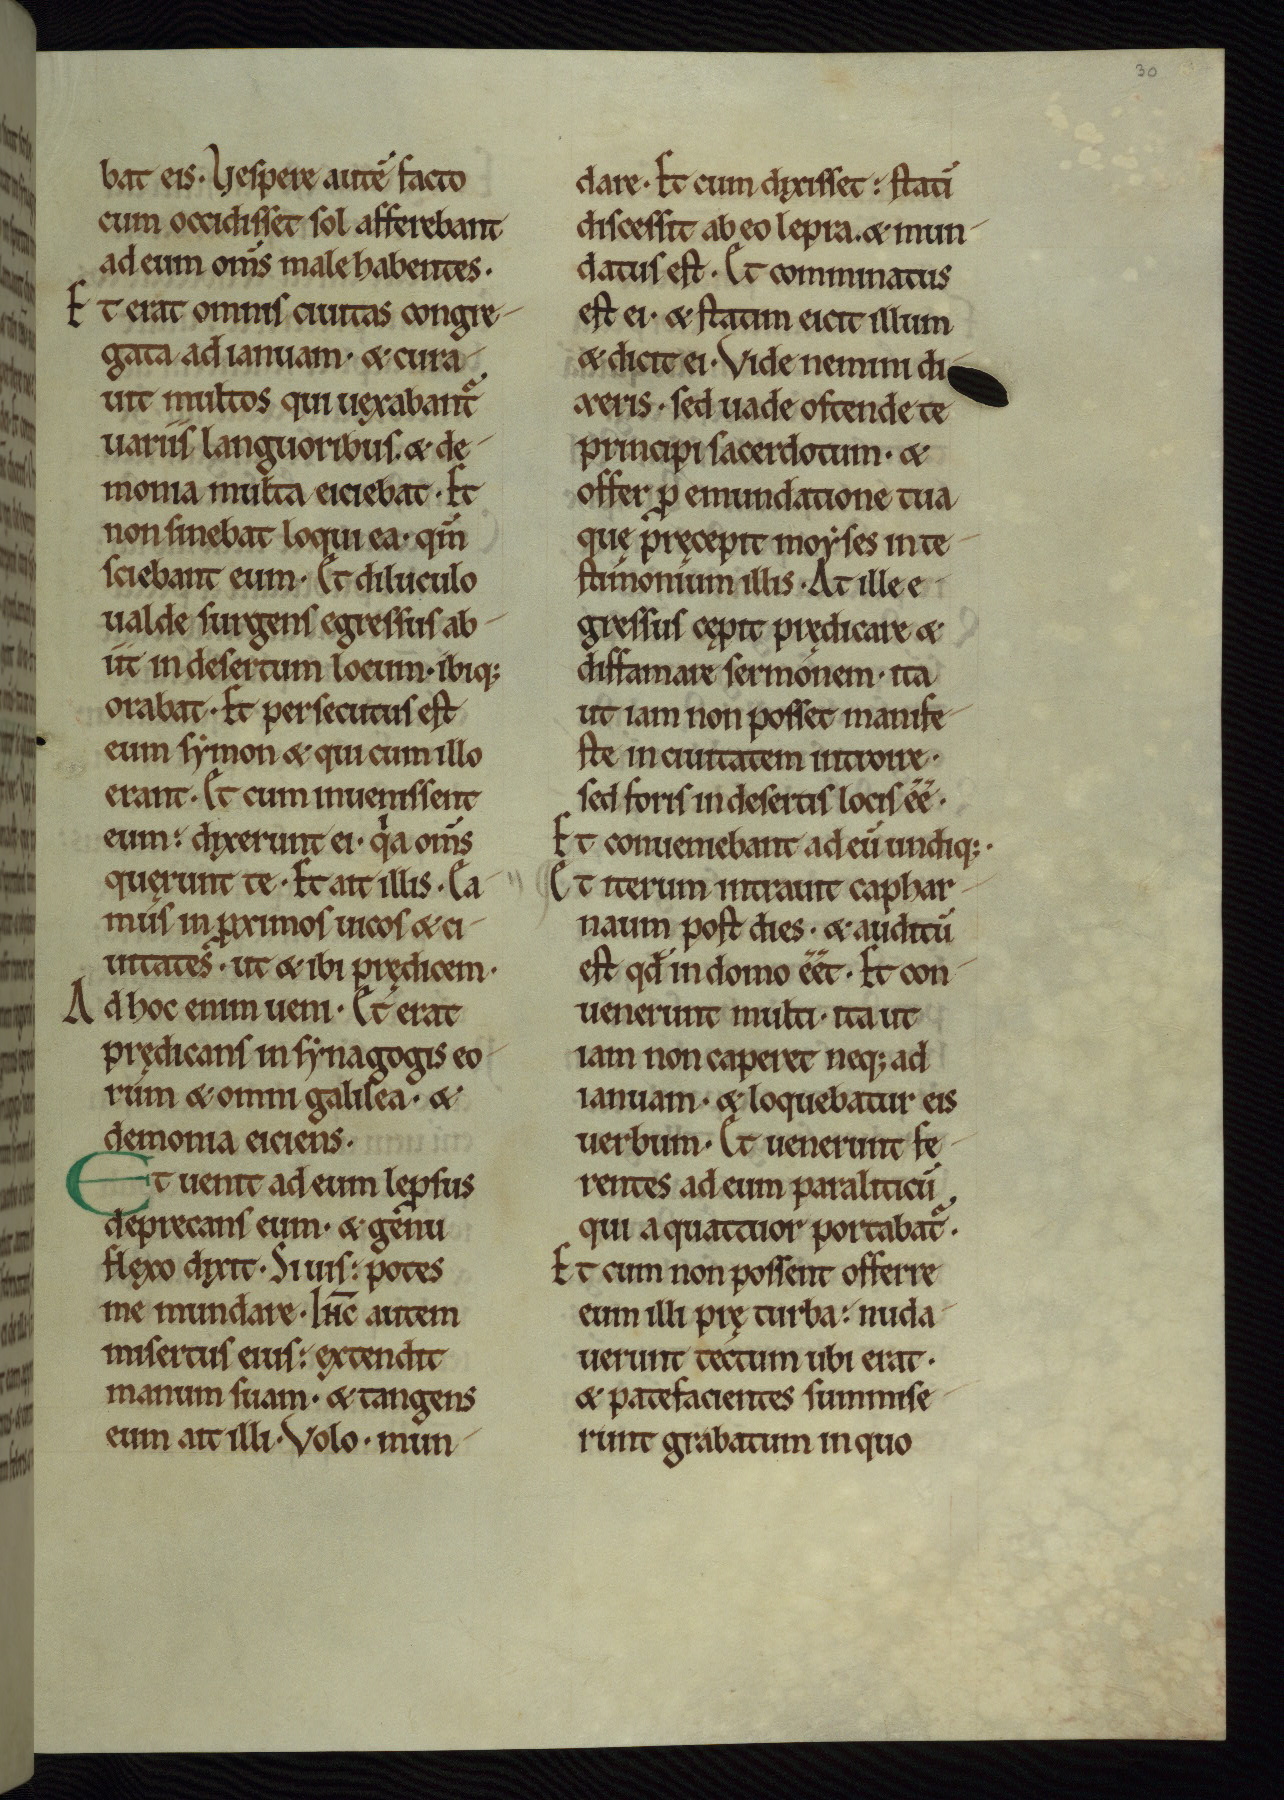 30
bat eis. Vespere autē facto
cum occidisset sol afferebant
ad eum om̄s male habentes.
Et erat omnis ciuitas congre-
gata ad ianuam. & cura-
uit multos qui uęxabant᷑
uariis languoribus. & de-
monia multa eiciebat. Et
non sinebat loqui ea. qm̄
sciebant eum. Et diluculo
ualde surgens egressus ab-
iit in desertum locum. ibiq;
orabat. Et persecutus est
eum sẏmon & qui cum illo
erant. Et cum inuenissent
eum: dixerunt ei. qͥa om̄s
quęrunt te. Et ait illis. Ea-
mus in ꝓximos uicos & ci-
uitates. ut & ibi prędicem.
Ad hoc enim ueni. Et erat
prędicans in sẏnagogis eo-
rum & omni galilea. &
demonia eiciens.
Et uenit ad eum leprosus
deprecans eum. & genu
flexo dixit. Si uis: potes
me mundare. Ihc̄ autem
misertus eius: extendit
manum suam. & tangens
eum ait illi. Volo. mun-
dare. Et cum dixisset: statī
discessit ab eo lepra. & mun-
datus est. Et comminatus
est ei. & statim eicit illum
& dicit ei. Vide nemini di-
xeris. sed uade ostende te
principi sacerdotum. &
offer ꝓ emundatione tua
quę p̄ręcepit moẏses in te-
stimonium illis. At ille e-
gressus cępit prędicare &
diffamare sermonem. ita
ut iam non posset manife-
ste in ciuitatem introire.
sed foris in desertis locis ēē.
Et conueniebant ad eū undiq;.
Et iterum intrauit caphar-
naum post dies. & auditū
est qđ in domo ēēt. Et con-
uenerunt multi. ita ut
iam non caperet neq; ad
ianuam. & loquebatur eis
uerbum. Et uenerunt fe-
rentes ad eum paraliticū
qui a quattuor portabat᷑.
Et cum non possent offerre
eum illi prę turba: nuda-
uerunt tectum ubi erat.
& patefacientes summise-
runt grabatum in quo